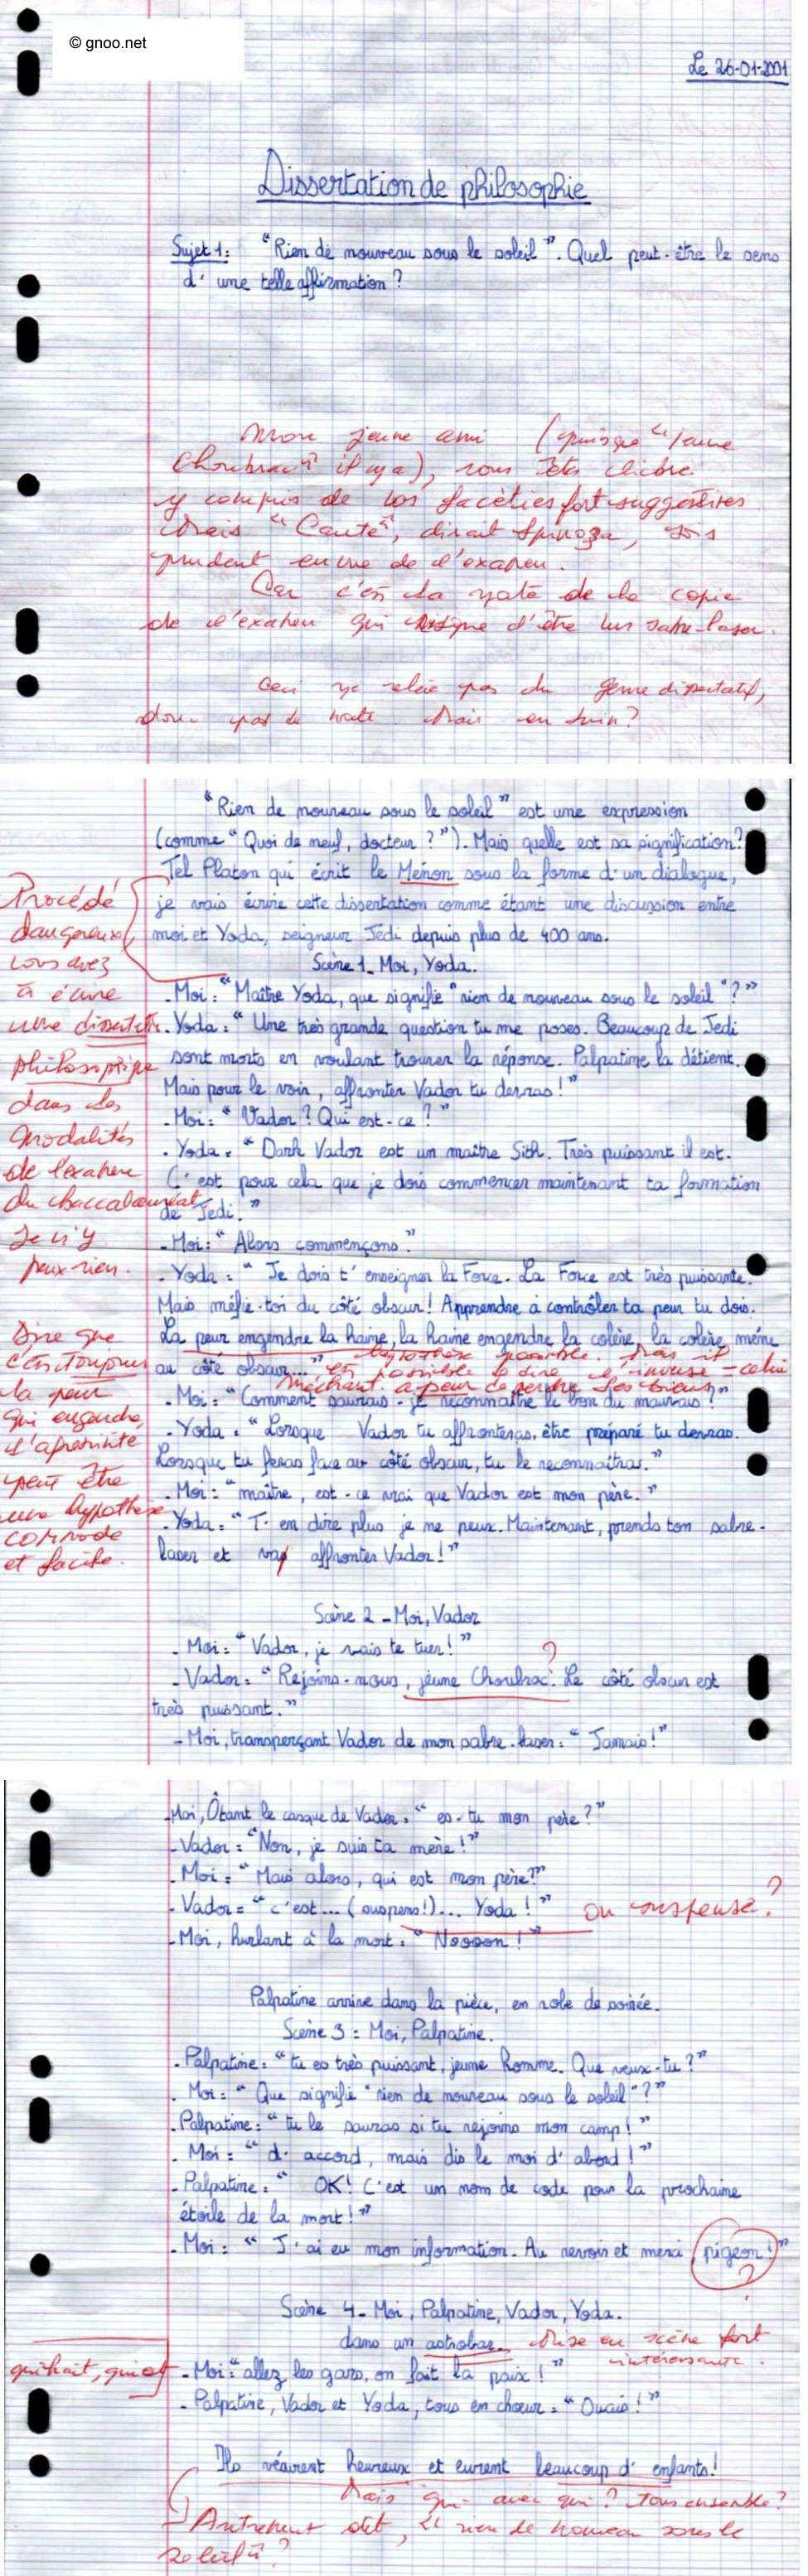 © gnoo.net
Le 26-01-2001
Dissertation de philosophie
Sujet 1: "Rien de nouveau sous le soleil". Quel peut-être le sens
d'une telle affirmation ?
Mon jeune ami (puisque "jeune
Choubrac" il y a), vous êtes
y compris de vos facéties fort suggestives
Mais "Caute", dirait Spinoza, sois
prudent en vue de l'examen.
Car c'est la note de la copie
de l'examen qui risque d'être un sabre-laser.
Ceci ne relève pas du genre dissertatif,
donc pas de note. Mais en juin ?
"Rien de nouveau sous le soleil" est une expression
(comme "Quoi de neuf, docteur ?"). Mais quelle est sa signification?
Tel Platon qui écrit le Ménon sous la forme d'un dialogue,
je vais écrire cette dissertation comme étant une discussion entre
moi et Yoda, seigneur Jedi depuis plus de 400 ans.
Procédé
dangereux,
vous avez
à écrire
une dissertation
philosophique
dans les
modalités
de l'examen
du baccalauréat
Je n'y
peux rien.
Scène 1_ Moi, Yoda.
- Moi: "Maître Yoda, que signifie "rien de nouveau sous le soleil"?"
- Yoda: "Une très grande question tu me poses. Beaucoup de Jedi
sont morts en voulant trouver la réponse. Palpatine la détient.
Mais pour le voir, affronter Vador tu devras!"
- Moi: "Vador ? Qui est-ce ?"
- Yoda: "Dark Vador est un maître Sith. Très puissant il est.
C'est pour cela que je dois commencer maintenant ta formation
de Jedi."
- Moi: "Alors commençons."
- Yoda: "Je dois t'enseigner la Force. La Force est très puissante.
Mais méfie-toi du côté obscur! Apprendre à contrôler ta peur tu dois.
La peur engendre la haine, la haine engendre la colère, la colère mène
au côté obscur..."
hypothèse possible. Mais il
est possible de dire l'inverse = celui
méchant a peur de perdre ses biens
Dire que
c'est toujours
la peur
qui engendre
l'agressivité
peut être
une hypothèse
commode
et facile.
- Moi: "Comment saurais-je reconnaître le bon du mauvais ?"
- Yoda: "Lorsque Vador tu affronteras, être préparé tu devras.
Lorsque tu feras face au côté obscur, tu le reconnaîtras."
- Moi: "maître, est-ce vrai que Vador est mon père."
- Yoda: "T'en dire plus je ne peux. Maintenant, prends ton sabre-
laser et vas affronter Vador!"
Scène 2 - Moi, Vador
- Moi: "Vador, je vais te tuer!"
?
- Vador: "Rejoins-nous, jeune Choubrac. Le côté obscur est
très puissant."
- Moi, transperçant Vador de mon sabre-laser: "Jamais!"
- Moi, Ôtant le casque de Vador: "es-tu mon père ?"
- Vador: "Non, je suis ta mère!"
- Moi: "Mais alors, qui est mon père?"
- Vador: "c'est... (suspens!)... Yoda!"
ou suspense ?
- Moi, hurlant à la mort: "Nooooon!"
Palpatine arrive dans la pièce, en robe de soirée.
Scène 3: Moi, Palpatine.
- Palpatine: "tu es très puissant, jeune homme. Que veux-tu ?"
- Moi: "Que signifie "rien de nouveau sous le soleil"?"
- Palpatine: "tu le sauras si tu rejoins mon camp!"
- Moi: "d'accord, mais dis le moi d'abord!"
- Palpatine: "OK! C'est un nom de code pour la prochaine
étoile de la mort!"
- Moi: "J'ai eu mon information. Au revoir et merci, pigeon!"
?
Scène 4_ Moi, Palpatine, Vador, Yoda.
dans un astrobar.
Mise en scène fort
intéressante.
- Moi: "allez les gars, on fait la paix!"
- Palpatine, Vador et Yoda, tous en chœur: "Ouais!"
Ils vécurent heureux et eurent beaucoup d'enfants!
Mais qui avec qui ? Tous ensemble ?
Autrement dit, "rien de nouveau sous le
soleil" ?